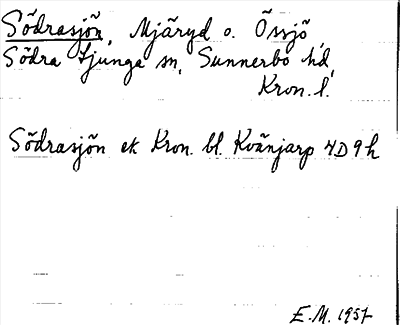 Södrasjön, Mjäryd o. Össjö,
Södra Ljunga sn, Sunnerbo hd,
Kron. l.
Södrasjön ek Kron. bl. Kvänjarp 4D9h
E.M. 1957